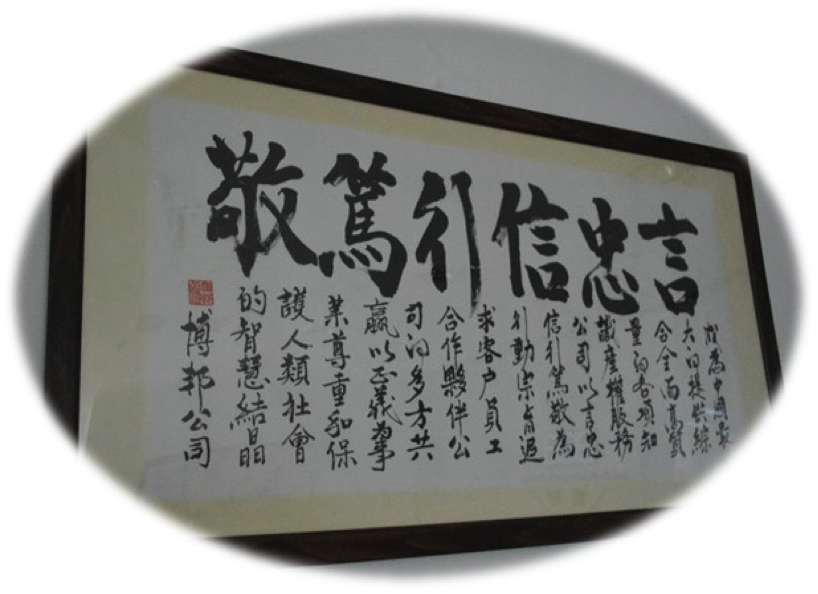 言忠信行篤敬
成為中國最
大的提供綜
合全面高質
量的各項知
識產權服務
公司以言忠
信行篤敬為
行動宗旨追
求客户員工
合作夥伴公
司的多方共
贏以正義為事
業尊重和保
護人類社會
的智慧結晶
博邦公司